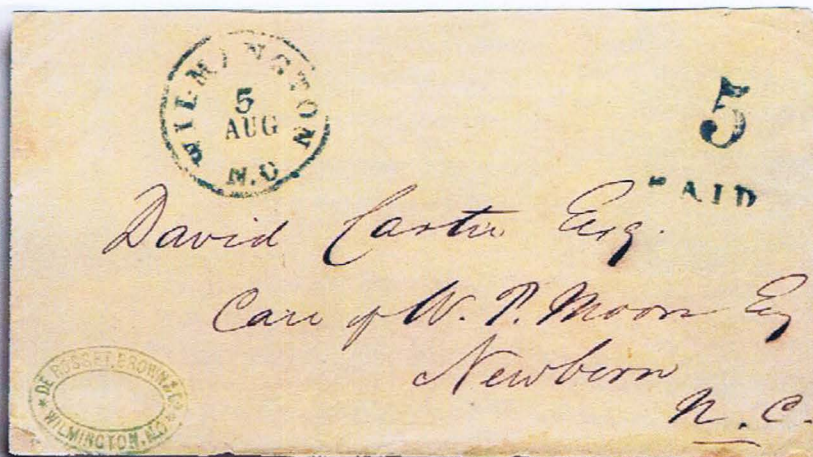 WILMINGTON
5
AUG
N.C
5
PAID
David Carter Esq.
Care of W. P. Moore Esq
Newbern
N. C.
* DE ROSSET, BROWN & Co *
WILMINGTON, N.C.